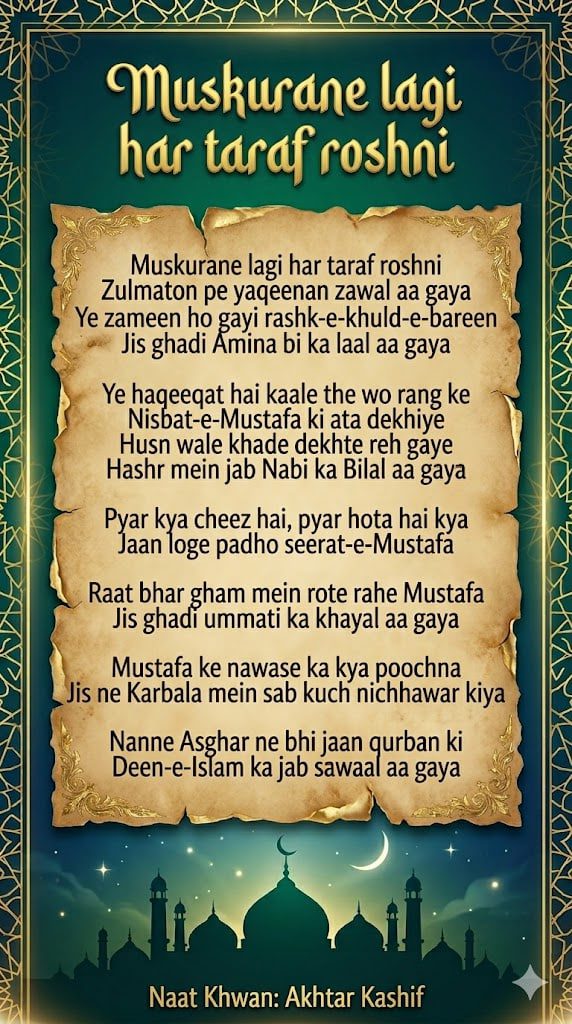 Muskurane lagi
har taraf roshni
Muskurane lagi har taraf roshni
Zulmaton pe yaqeenan zawal aa gaya
Ye zameen ho gayi rashk-e-khuld-e-bareen
Jis ghadi Amina bi ka laal aa gaya
Ye haqeeqat hai kaale the wo rang ke
Nisbat-e-Mustafa ki ata dekhiye
Husn wale khade dekhte reh gaye
Hashr mein jab Nabi ka Bilal aa gaya
Pyar kya cheez hai, pyar hota hai kya
Jaan loge padho seerat-e-Mustafa
Raat bhar gham mein rote rahe Mustafa
Jis ghadi ummati ka khayal aa gaya
Mustafa ke nawase ka kya poochna
Jis ne Karbala mein sab kuch nichhawar kiya
Nanne Asghar ne bhi jaan qurban ki
Deen-e-Islam ka jab sawaal aa gaya
Naat Khwan: Akhtar Kashif